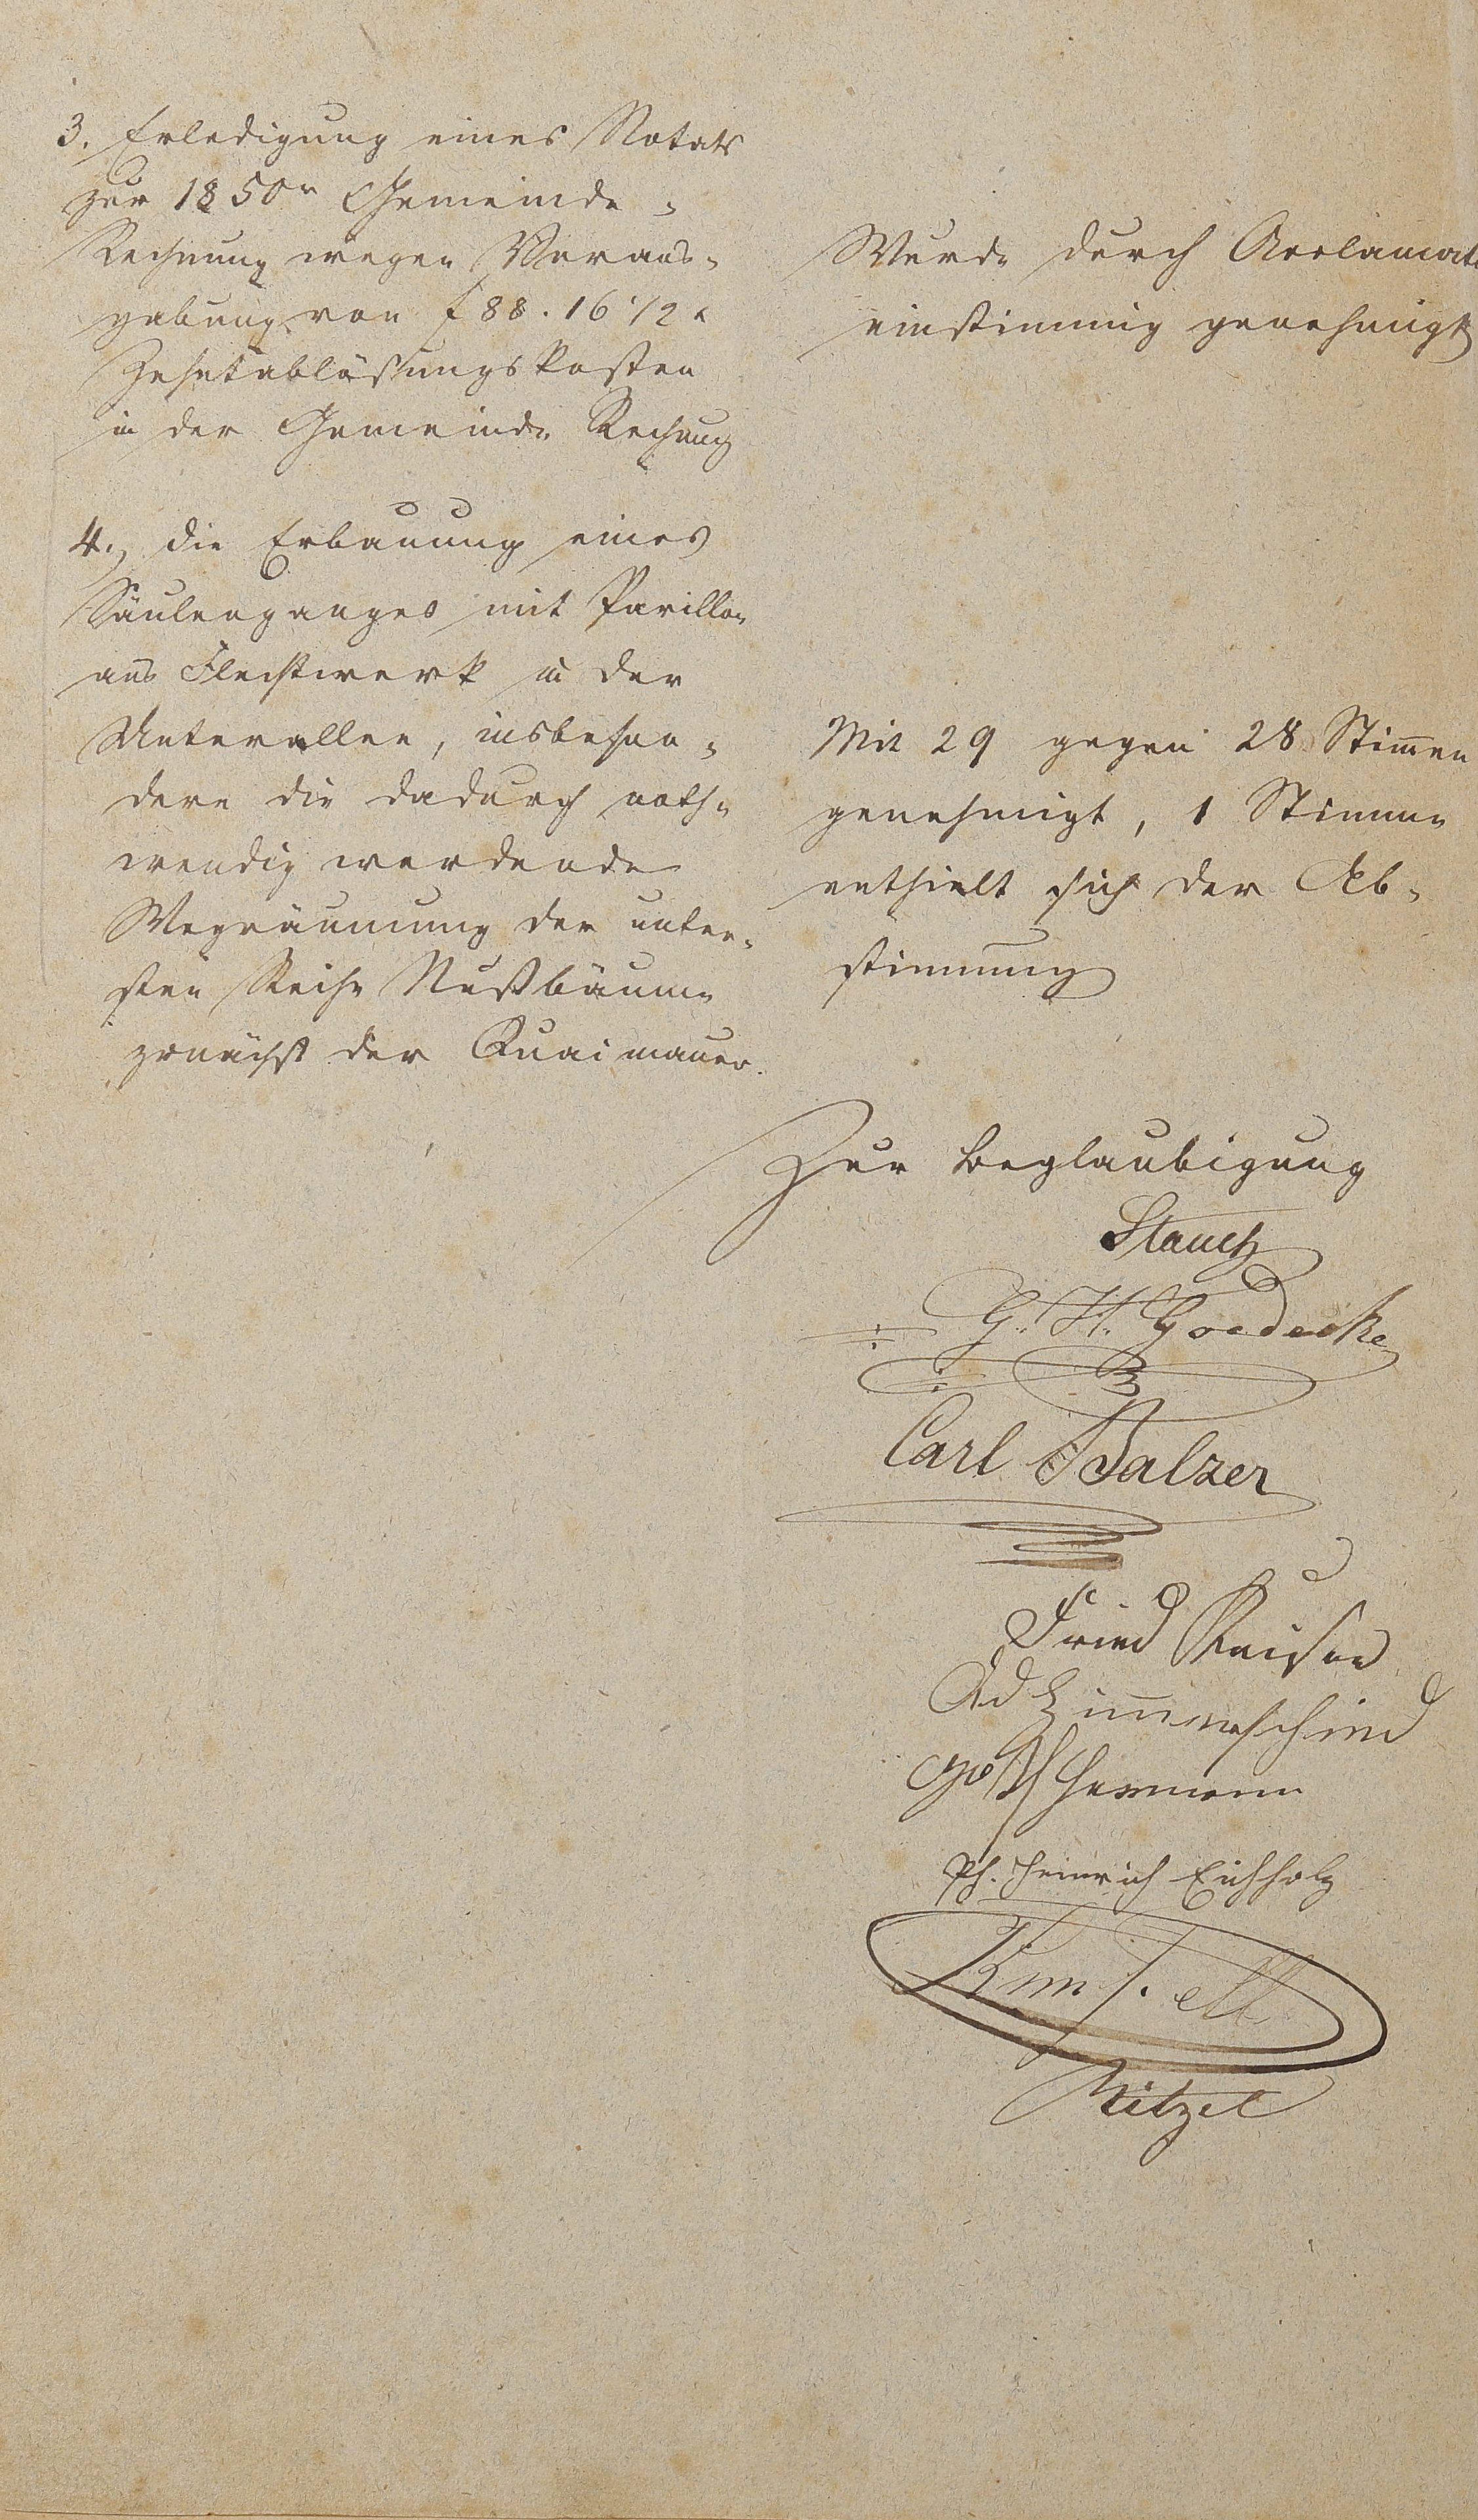 3. Erledigung eines Notats
zur 1850r Gemeinde-
Rechnung wegen Voraus-
gabung von f 88. 16 1/2 x
Zehntablösungskosten
in der Gemeinde Rechnung
Wurde durch Acclamati
einstimmig genehmigt
4., die Erbauung eines
Säulenganges mit Pavillon
aus Flechtwerk in der
Unterallee, insbeson-
dere die dadurch noth-
wendig werdende
Wegräumung der unter-
sten Reihe Nußbäume
zunächst der Quaimauer.
Mit 29 gegen 28 Stimmen
genehmigt, 1 Stimme
enthielt sich der Ab-
stimmung
Zur Beglaubigung
Stauch
G. H. Goedecke
Carl Balzer
Fried
Ad
Hermann
Ph. Heinrich Eichholz
Nitzel